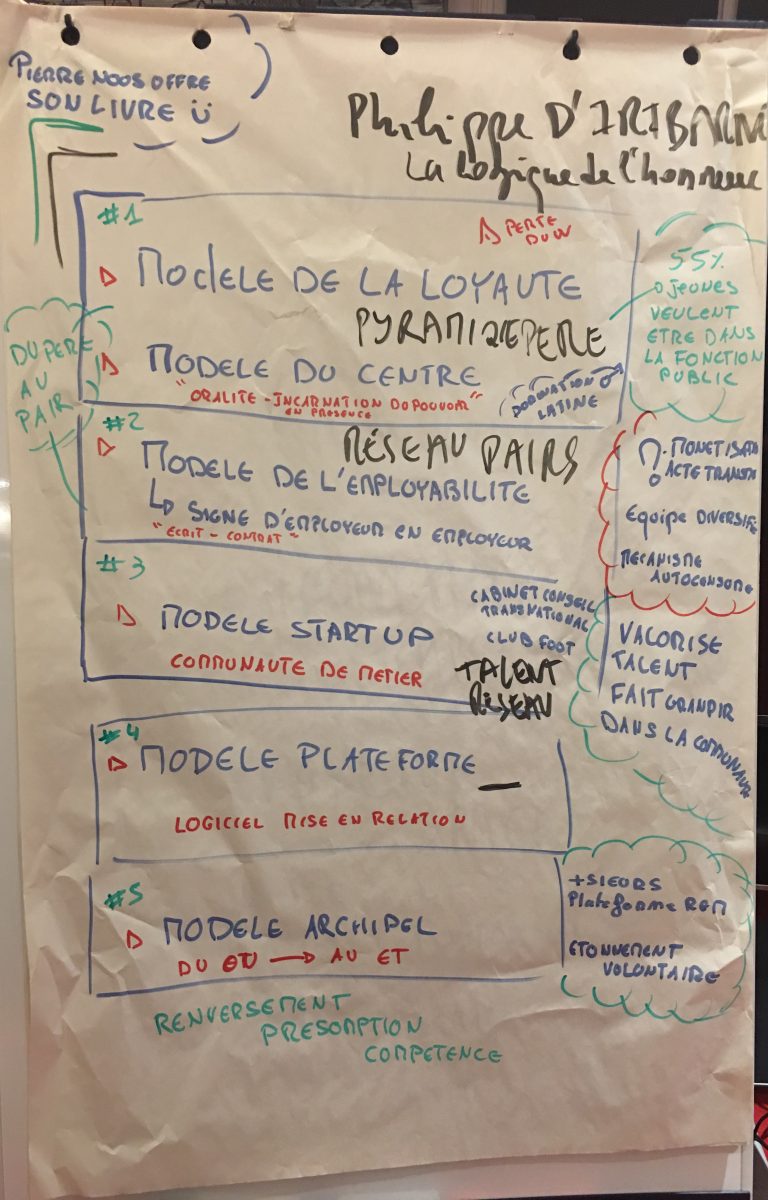 PIERRE NOUS OFFRE
SON LIVRE
Philippe D'IRIBARNE
La Logique de l'honneur
#1
PERTE
DU W
MODELE DE LA LOYAUTE
PYRAMIDE PERE
MODELE DU CENTRE
"ORALITE - INCARNATION DU POUVOIR"
EN PRESENCE
DOMINATION ♂
LATINE
55%
JEUNES
VEULENT
ETRE DANS
LA FONCTION
PUBLIC
DU PERE
AU
PAIR
#2
RÉSEAU PAIRS
MODELE DE L'EMPLOYABILITE
SIGNE D'EMPLOYEUR EN EMPLOYEUR
"ECRIT - CONTRAT"
MONETISA
ACTE TRANSA
Equipe DIVERSIFIE
MECANISME
AUTOCENSURE
#3
MODELE STARTUP
COMMUNAUTE DE METIER
CABINET CONSEIL
TRANSNATIONAL
CLUB FOOT
TALENT
RÉSEAU
VALORISE
TALENT
FAIT GRANDIR
DANS LA COMMUNAUTE
#4
MODELE PLATEFORME
LOGICIEL MISE EN RELATION
#5
MODELE ARCHIPEL
DU OU → AU ET
+SIEURS
Plateforme
ETONNEMENT
VOLONTAIRE
RENVERSEMENT
PRESOMPTION
COMPETENCE